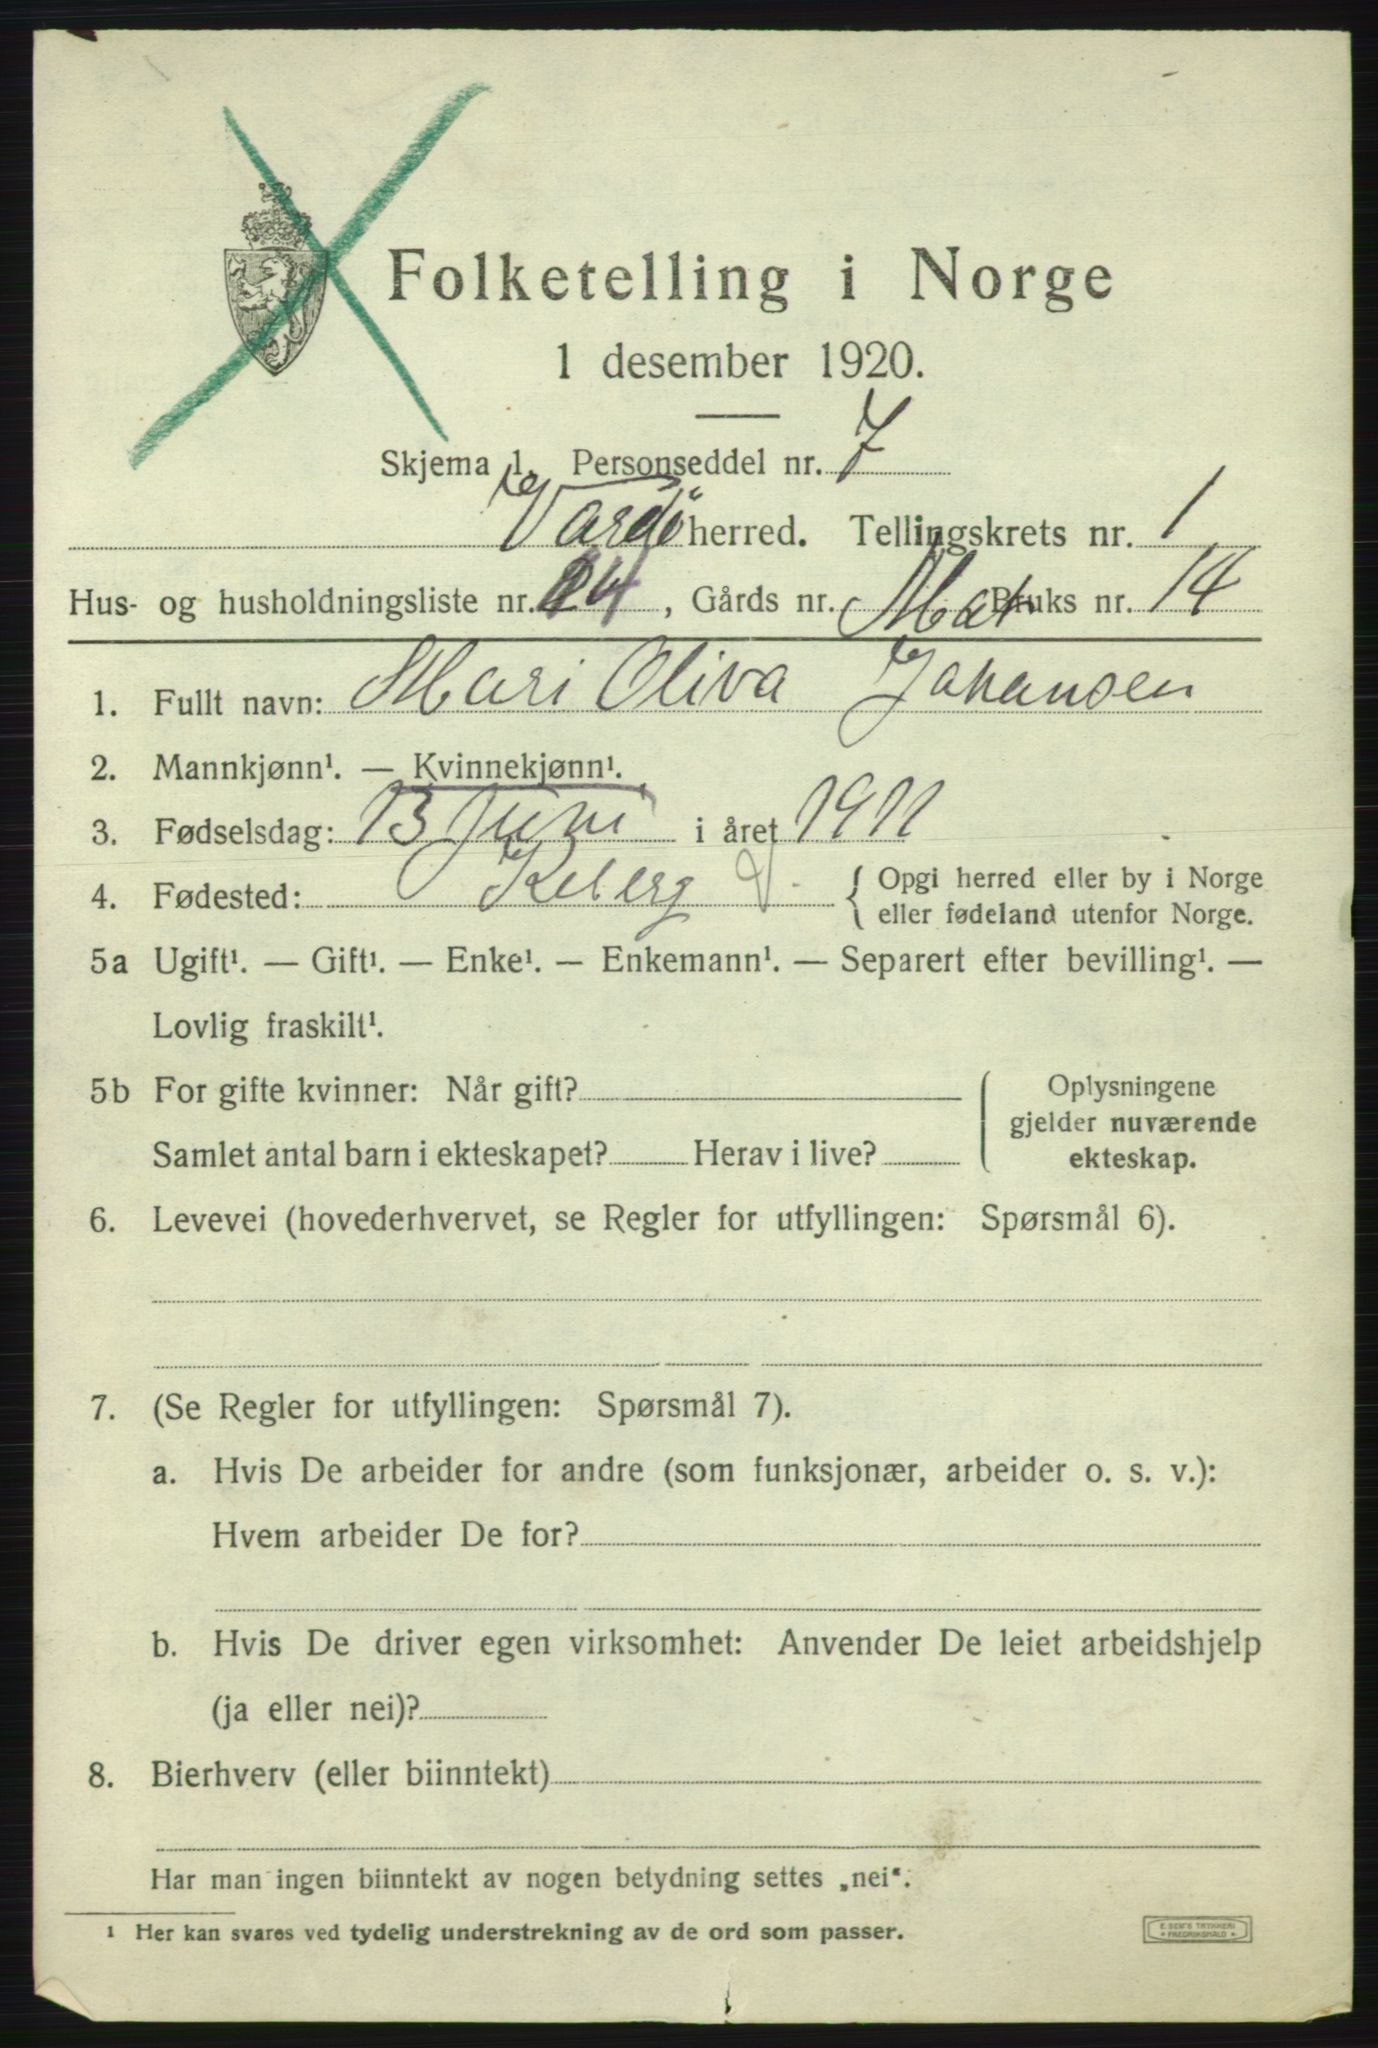 Folketelling i Norge
1 desember 1920.
Skjema 1. Personseddel nr. 7
Vardø herred. Tellingskrets nr. 1
Hus- og husholdningsliste nr. 24, Gårds nr. Mat Bruks nr. 14
1. Fullt navn: Mari Oliva Johansen
2. Mannkjønn¹. — Kvinnekjønn¹.
3. Fødselsdag: 13 Juni i året 1911
4. Fødested: Kiberg V. { Opgi herred eller by i Norge
eller fødeland utenfor Norge.
5a Ugift¹. — Gift¹. — Enke¹. — Enkemann¹. — Separert efter bevilling¹. —
Lovlig fraskilt¹.
5b For gifte kvinner: Når gift? { Oplysningene
gjelder nuværende
Samlet antal barn i ekteskapet? Herav i live? ekteskap.
6. Levevei (hovederhvervet, se Regler for utfyllingen: Spørsmål 6).
7. (Se Regler for utfyllingen: Spørsmål 7).
a. Hvis De arbeider for andre (som funksjonær, arbeider o. s. v.):
Hvem arbeider De for?
b. Hvis De driver egen virksomhet: Anvender De leiet arbeidshjelp
(ja eller nei)?
8. Bierhverv (eller biinntekt)
Har man ingen biinntekt av nogen betydning settes „nei“.
¹ Her kan svares ved tydelig understrekning av de ord som passer.
E. SEM'S TRYKKERI
* FREDRIKSHALD *